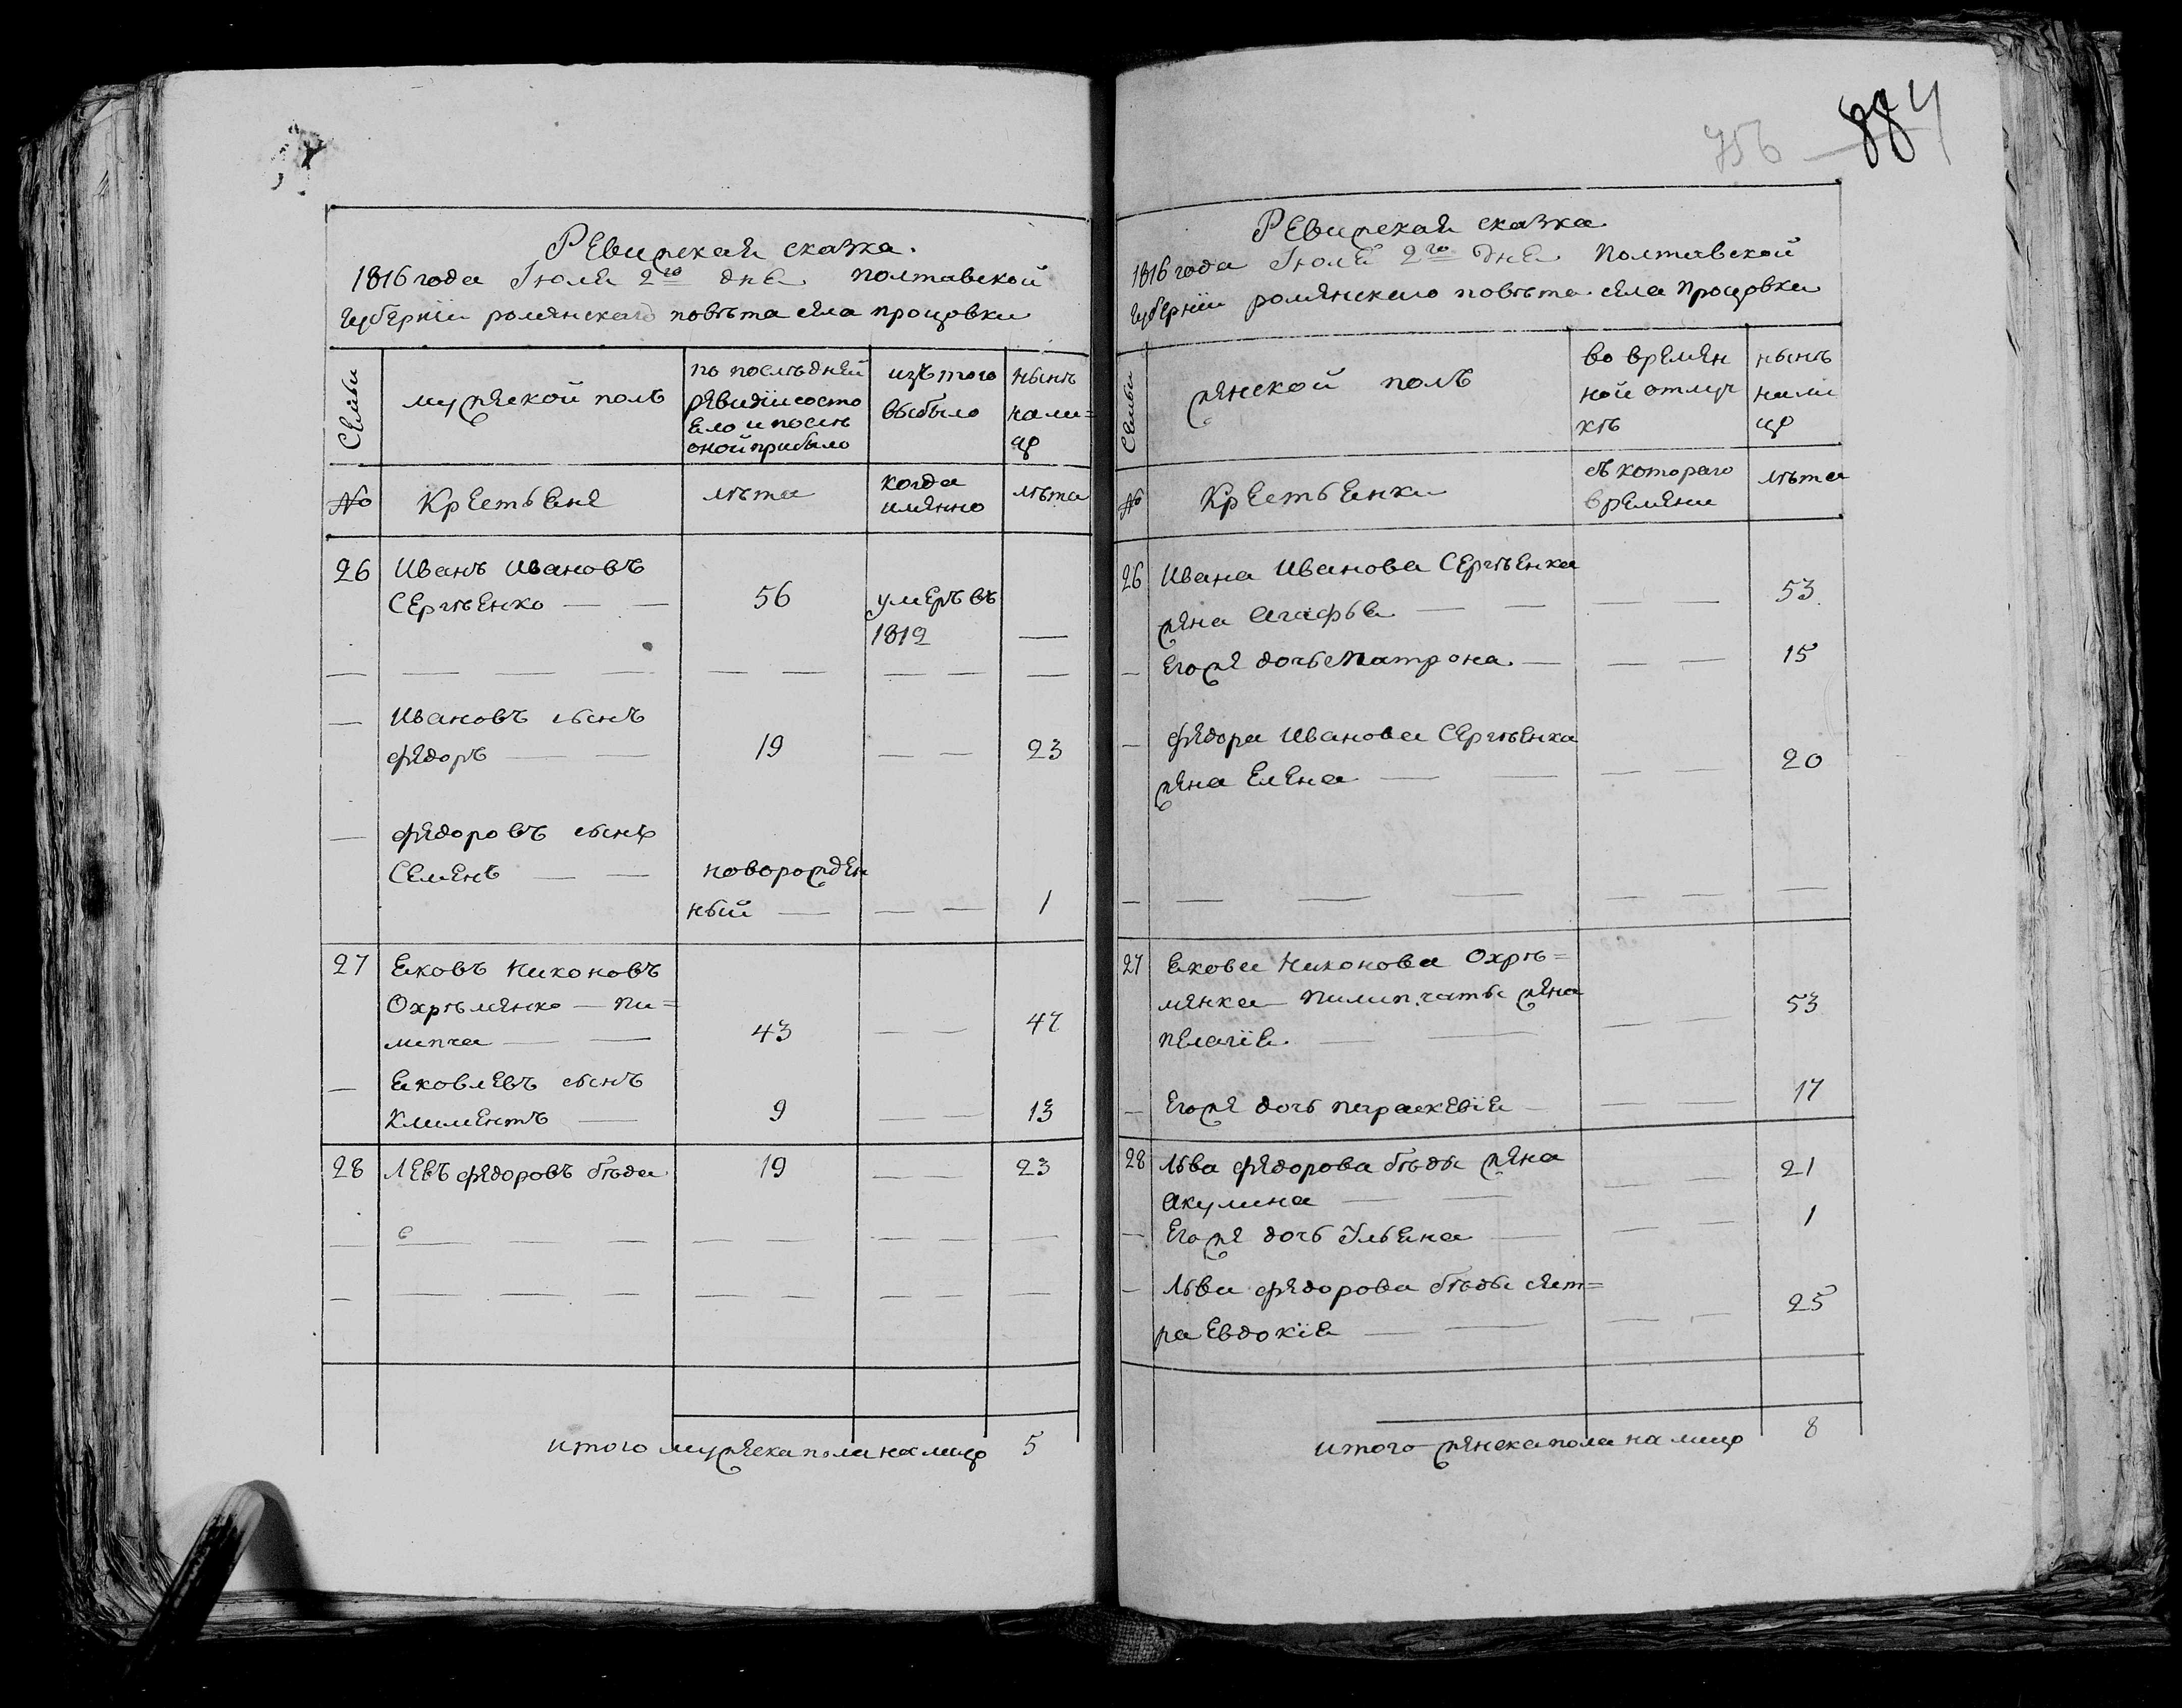 Ревижская сказка.
1816 года Іюля 2го дня Полтавской
губерніи роменскаго повѣта села процовки
Семьи
мужеской полъ
по послѣдней
ревизіи состо
яло и послѣ
оной прибыло
изъ того
выбыло
нынѣ
нали=
цо
№
Крестьяне
лѣта
когда
имянно
лѣта
26
Иванъ Ивановъ
Сергѣенко — —
56
умеръ въ
1812
—
Ивановъ сынъ
Федоръ — —
19
— —
23
Федоровъ сынъ
Семенъ — —
новорожден
ный —
— —
1
27
Яковъ Никоновъ
Охрѣменко — Пи=
липча — —
43
— —
47
Яковлевъ сынъ
Климентъ —
9
— —
13
28
Левъ федоровъ бѣда
19
— —
23
итого мужеска пола на лицо 5
756 884
Ревижская сказка
1816 года Іюля 2го дня Полтавской
губерніи роменскаго повѣта села Процовки
Семьи
женской полъ
во времян
ной отлуч
кѣ
нынѣ
нали
цо
№
Крестьянки
съ котораго
времяни
лѣта
26
Ивана Иванова Сергѣенка
жена Агафья — —
— —
53
Егоже дочь Матрона —
— —
15
Федора Иванова Сергѣенка
жена Елена — —
— —
20
27
Якова Никонова Охрѣ=
менка Пилипчаты жена
Пелагія — —
— —
53
Егоже дочь Параскевія —
— —
17
28
Льва федорова бѣды жена
Акулина — —
— —
21
Егоже дочь Ульяна —
— —
1
Льва федорова бѣды сест=
ра Евдокія — —
— —
25
итого женска пола на лицо 8